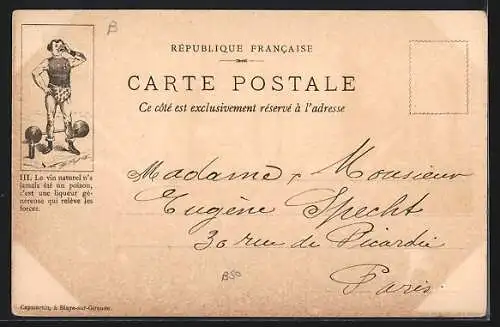 B
RÉPUBLIQUE FRANÇAISE
CARTE POSTALE
Ce côté est exclusivement réservé à l'adresse
III. Le vin naturel n'a
jamais été un poison,
c'est une liqueur gé-
néreuse qui relève les
forces.
Madame & Monsieur
Eugène Specht
30 rue de Picardie
Paris
B50
à Blaye-sur-Gironde.